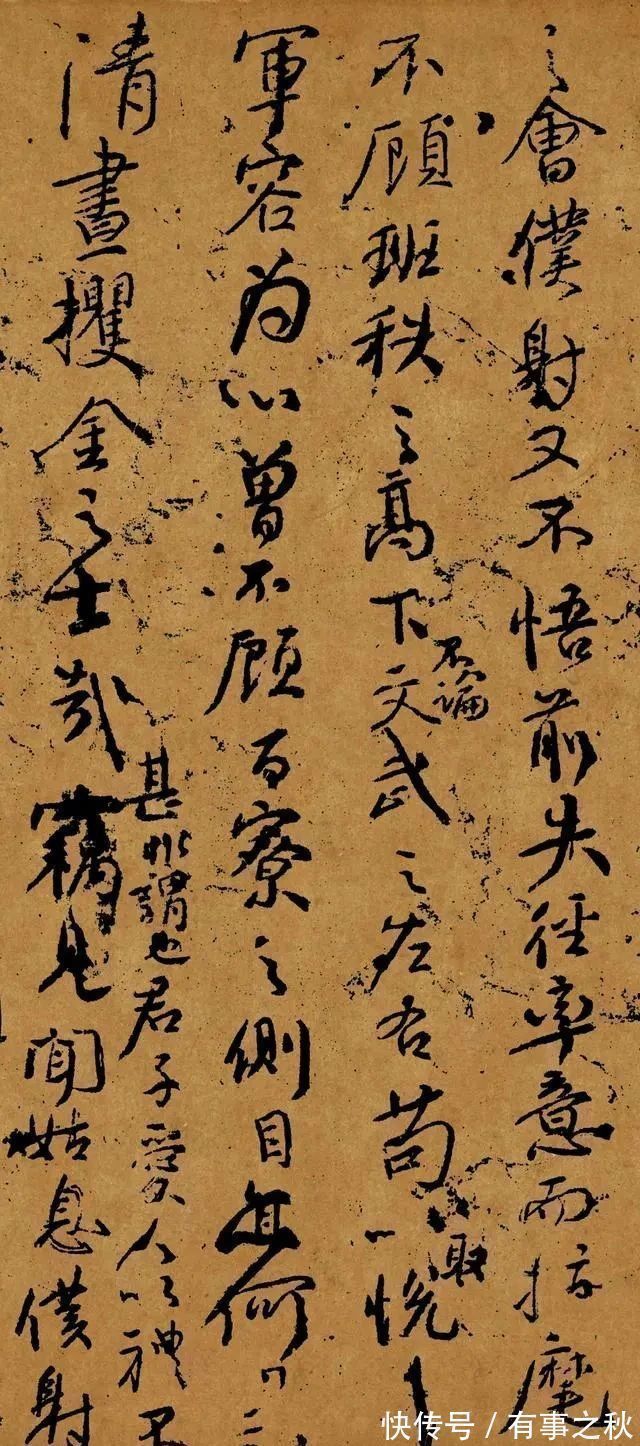 之會僕射又不悟前失徑率意而指麾
不顧班秩之高下不論文武之左右苟以取悅
軍容為心曾不顧百寮之側目亦何
清晝攫金之士哉
甚非謂也君子愛人以禮
竊見聞姑息僕射
快传号／有事之秋